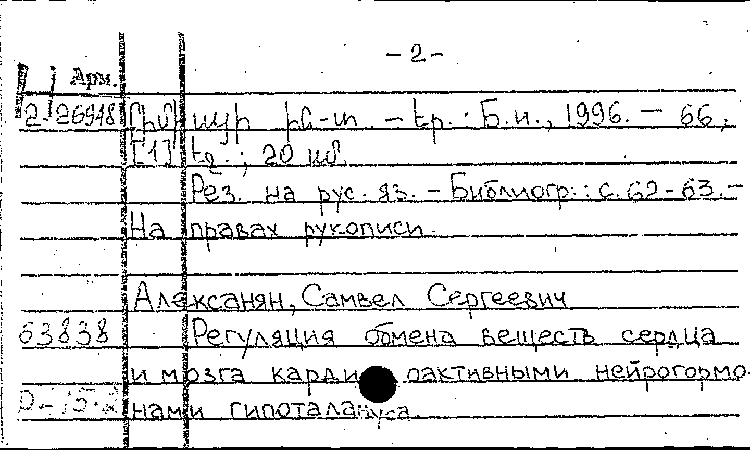 -2-
Арм.
2-26948 իա-տ. – Եր. : Б.и., 1996. – 66,
[1] էջ ; 20 սմ.
Рез. на рус. яз. – Библиогр.: с. 62-63. –
На правах рукописи.
Алексанян, Самвел Сергеевич
63838 Регуляция обмена веществ сердца
и мозга кардиоактивными нейрогормо-
нами гипоталамуса.